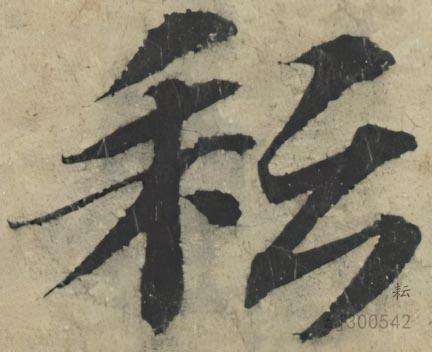 耘
耘
300542